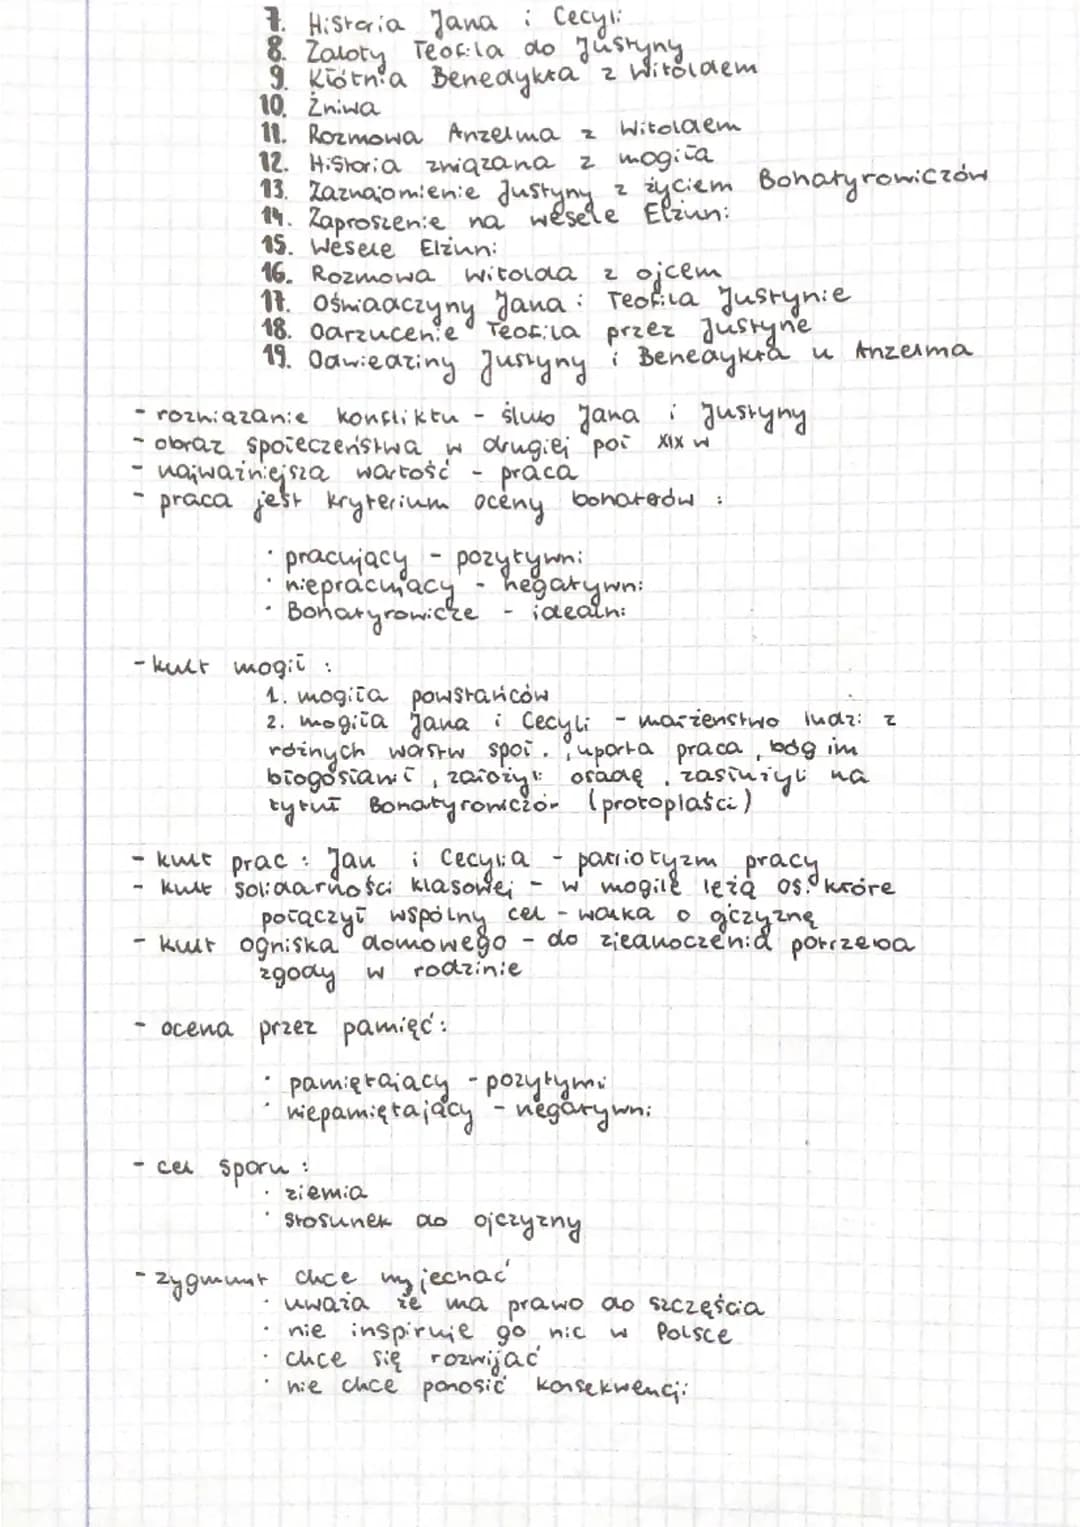 7. Historia Jana i Cecyli
8. Zaloty Teofila do Justyny
9. Kłótnia Benedykta z Witoldem
10. Żniwa
11. Rozmowa Anzelma z Witoldem
12. Historia związana z mogiłą
13. Zaznajomienie Justyny z życiem Bohatyrowiczów
14. Zaproszenie na wesele Elżuni
15. Wesele Elżuni
16. Rozmowa Witolda z ojcem
17. Oświadczyny Jana i Teofila Justynie
18. Odrzucenie Teofila przez Justynę
19. Odwiedziny Justyny i Benedykta u Anzelma
- rozwiązanie konfliktu - ślub Jana i Justyny
- obraz społeczeństwa w drugiej poł XIX w
- najważniejsza wartość - praca
- praca jest kryterium oceny bohaterów :
· pracujący - pozytywni
· niepracujący - negatywni
· Bohatyrowicze - idealni
- kult mogił :
1. mogiła powstańców
2. mogiła Jana i Cecyli - małżeństwo ludzi z
różnych warstw społ. , uparta praca , bóg im
błogosławił , założyli osadę , zasłużyli na
tytuł Bohatyrowiczów (protoplaści)
- kult prac : Jan i Cecylia - patriotyzm pracy
- kult solidarności klasowej - w mogile leżą os. które
połączył wspólny cel - walka o ojczyznę
- kult ogniska domowego - do zjednoczenia potrzeba
zgody w rodzinie
- ocena przez pamięć :
· pamiętający - pozytywni
· niepamiętający - negatywni
- cel sporu :
· ziemia
· stosunek do ojczyzny
- zygmunt chce wyjechać
· uważa że ma prawo do szczęścia
· nie inspiruje go nic w Polsce
· chce się rozwijać
· nie chce ponosić konsekwencji